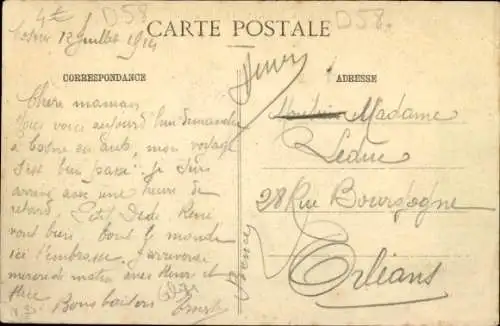 D58
D58.
CARTE POSTALE
Cosne 12 juillet 1914
CORRESPONDANCE
ADRESSE
Chère maman
voici aujourd'hui dimanche
à Cosne en auto, mon voyage
s'est bien passé je suis
arrivé avec une heure de
retard, Dédé René
vont bien tout le monde
ici t'embrasse. J'arriverai
mercredi matin avec et
Bons baisers
Madame
Leduc
28 Rue Bourgogne
Orléans